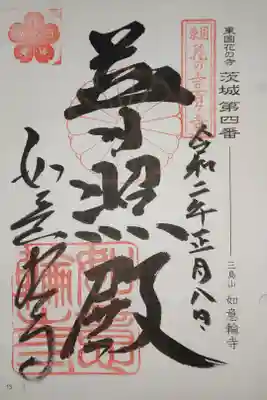 東国花の寺
茨城 第四番
東国花の寺百ヶ寺
令和二年正月八日
三島山 如意輪寺
夢照殿
如意輪寺